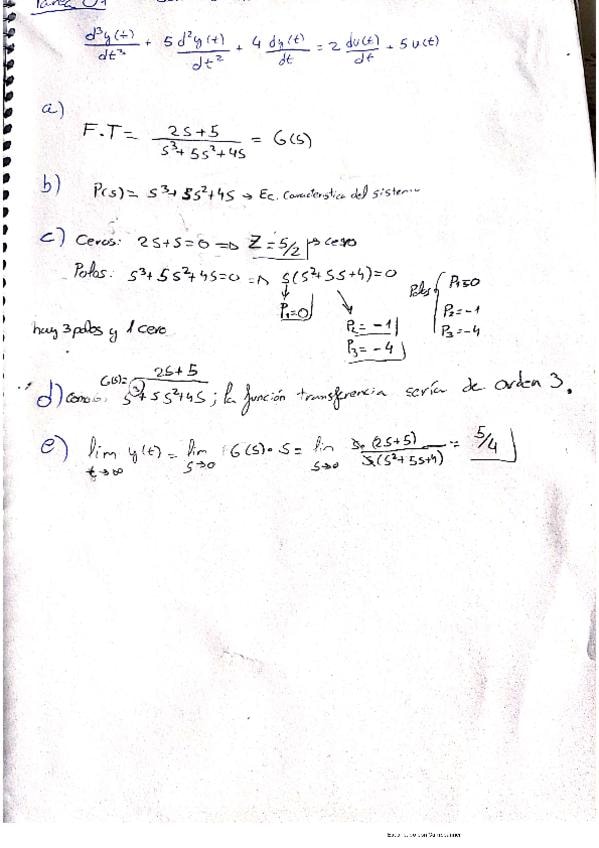 Tarea 01
d³y(t)/dt³ + 5 d²y(t)/dt² + 4 dy(t)/dt = 2 du(t)/dt + 5u(t)
a)
F.T = (2s+5)/(s³+5s²+4s) = G(s)
b) P(s) = s³+5s²+4s → Ec. Característica del sistema
c) Ceros: 2s+5=0 ⇒ Z = 5/2 → cero
Polos: s³+5s²+4s=0 ⇒ s(s²+5s+4)=0
P₁=0
P₂ = -1
P₃ = -4
Polos { P₁=0
P₂=-1
P₃=-4
hay 3 polos y 1 cero
d) Como G(s)= (2s+5)/(s³+5s²+4s) ; la función transferencia sería de orden 3.
e) lim t→∞ y(t) = lim s→0 G(s)·s = lim s→0 s·(2s+5)/s(s²+5s+4) = 5/4